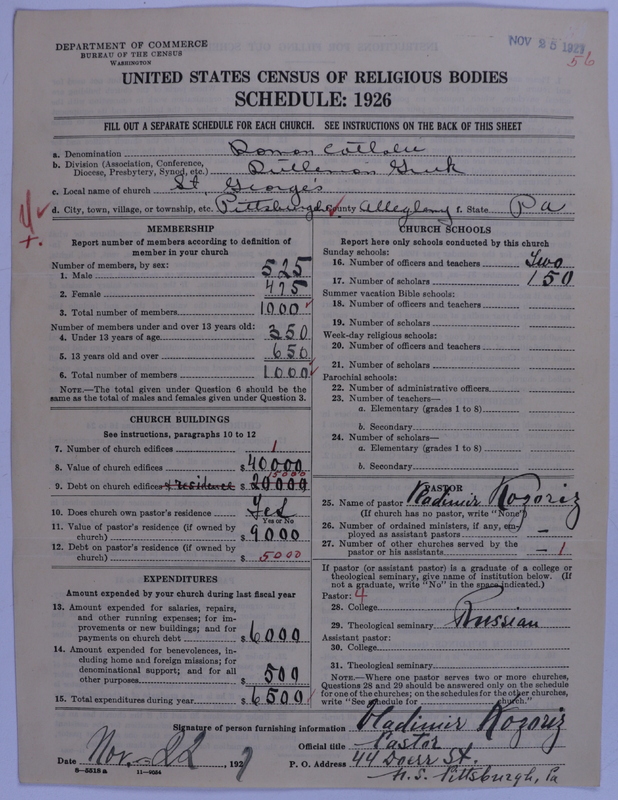 DEPARTMENT OF COMMERCE
BUREAU OF THE CENSUS
WASHINGTON
NOV 25 1927
56
UNITED STATES CENSUS OF RELIGIOUS BODIES
SCHEDULE: 1926
FILL OUT A SEPARATE SCHEDULE FOR EACH CHURCH. SEE INSTRUCTIONS ON THE BACK OF THIS SHEET
a. Denomination Roman Catholic
b. Division (Association, Conference, Diocese, Presbytery, Synod, etc.) Ruthenian Greek
c. Local name of church St. George's
d. City, town, village, or township, etc. Pittsburgh County Allegheny f. State Pa
MEMBERSHIP
Report number of members according to definition of
member in your church
Number of members, by sex:
1. Male 525
2. Female 475
3. Total number of members 1000
Number of members under and over 13 years old:
4. Under 13 years of age 350
5. 13 years old and over 650
6. Total number of members 1000
NOTE.—The total given under Question 6 should be the
same as the total of males and females given under Question 3.
CHURCH BUILDINGS
See instructions, paragraphs 10 to 12
7. Number of church edifices 1
8. Value of church edifices $ 40000
15000
9. Debt on church edifices & residence $ 20000
10. Does church own pastor's residence Yes
Yes or No
11. Value of pastor's residence (if owned by
church) $ 9000
12. Debt on pastor's residence (if owned by
church) $ 5000
EXPENDITURES
Amount expended by your church during last fiscal year
13. Amount expended for salaries, repairs,
and other running expenses; for im-
provements or new buildings; and for
payments on church debt $ 6000
14. Amount expended for benevolences, in-
cluding home and foreign missions; for
denominational support; and for all
other purposes $ 500
15. Total expenditures during year $ 6500
CHURCH SCHOOLS
Report here only schools conducted by this church
Sunday schools:
16. Number of officers and teachers Two
17. Number of scholars 150
Summer vacation Bible schools:
18. Number of officers and teachers
19. Number of scholars
Week-day religious schools:
20. Number of officers and teachers
21. Number of scholars
Parochial schools:
22. Number of administrative officers
23. Number of teachers—
a. Elementary (grades 1 to 8)
b. Secondary
24. Number of scholars—
a. Elementary (grades 1 to 8)
b. Secondary
PASTOR
25. Name of pastor Vladimir Kogoriz
(If church has no pastor, write "None")
26. Number of ordained ministers, if any, em-
ployed as assistant pastors —
27. Number of other churches served by the
pastor or his assistants — 1
If pastor (or assistant pastor) is a graduate of a college or
theological seminary, give name of institution below. (If
not a graduate, write "No" in the space indicated.)
Pastor: 4
28. College
29. Theological seminary Russian
Assistant pastor:
30. College
31. Theological seminary
NOTE.—Where one pastor serves two or more churches,
Questions 28 and 29 should be answered only on the schedule
for one of the churches; on the schedules for the other churches,
write "See schedule for church."
Signature of person furnishing information Vladimir Kogoriz
Official title Pastor
Date Nov. 22, 1927 P. O. Address 44 Doerr St.
N. S. Pittsburgh, Pa
6—5516 a 11—9054